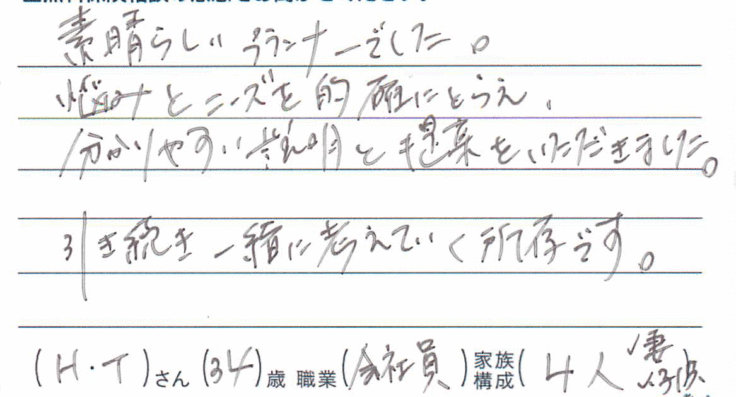 素晴らしいプランナーでした。
悩みとニーズを的確にとらえ、
分かりやすい説明と提案をいただきました。
引き続き一緒に考えていく所存です。
(H・T)さん(34)歳 職業(会社員)家族構成(4人 妻